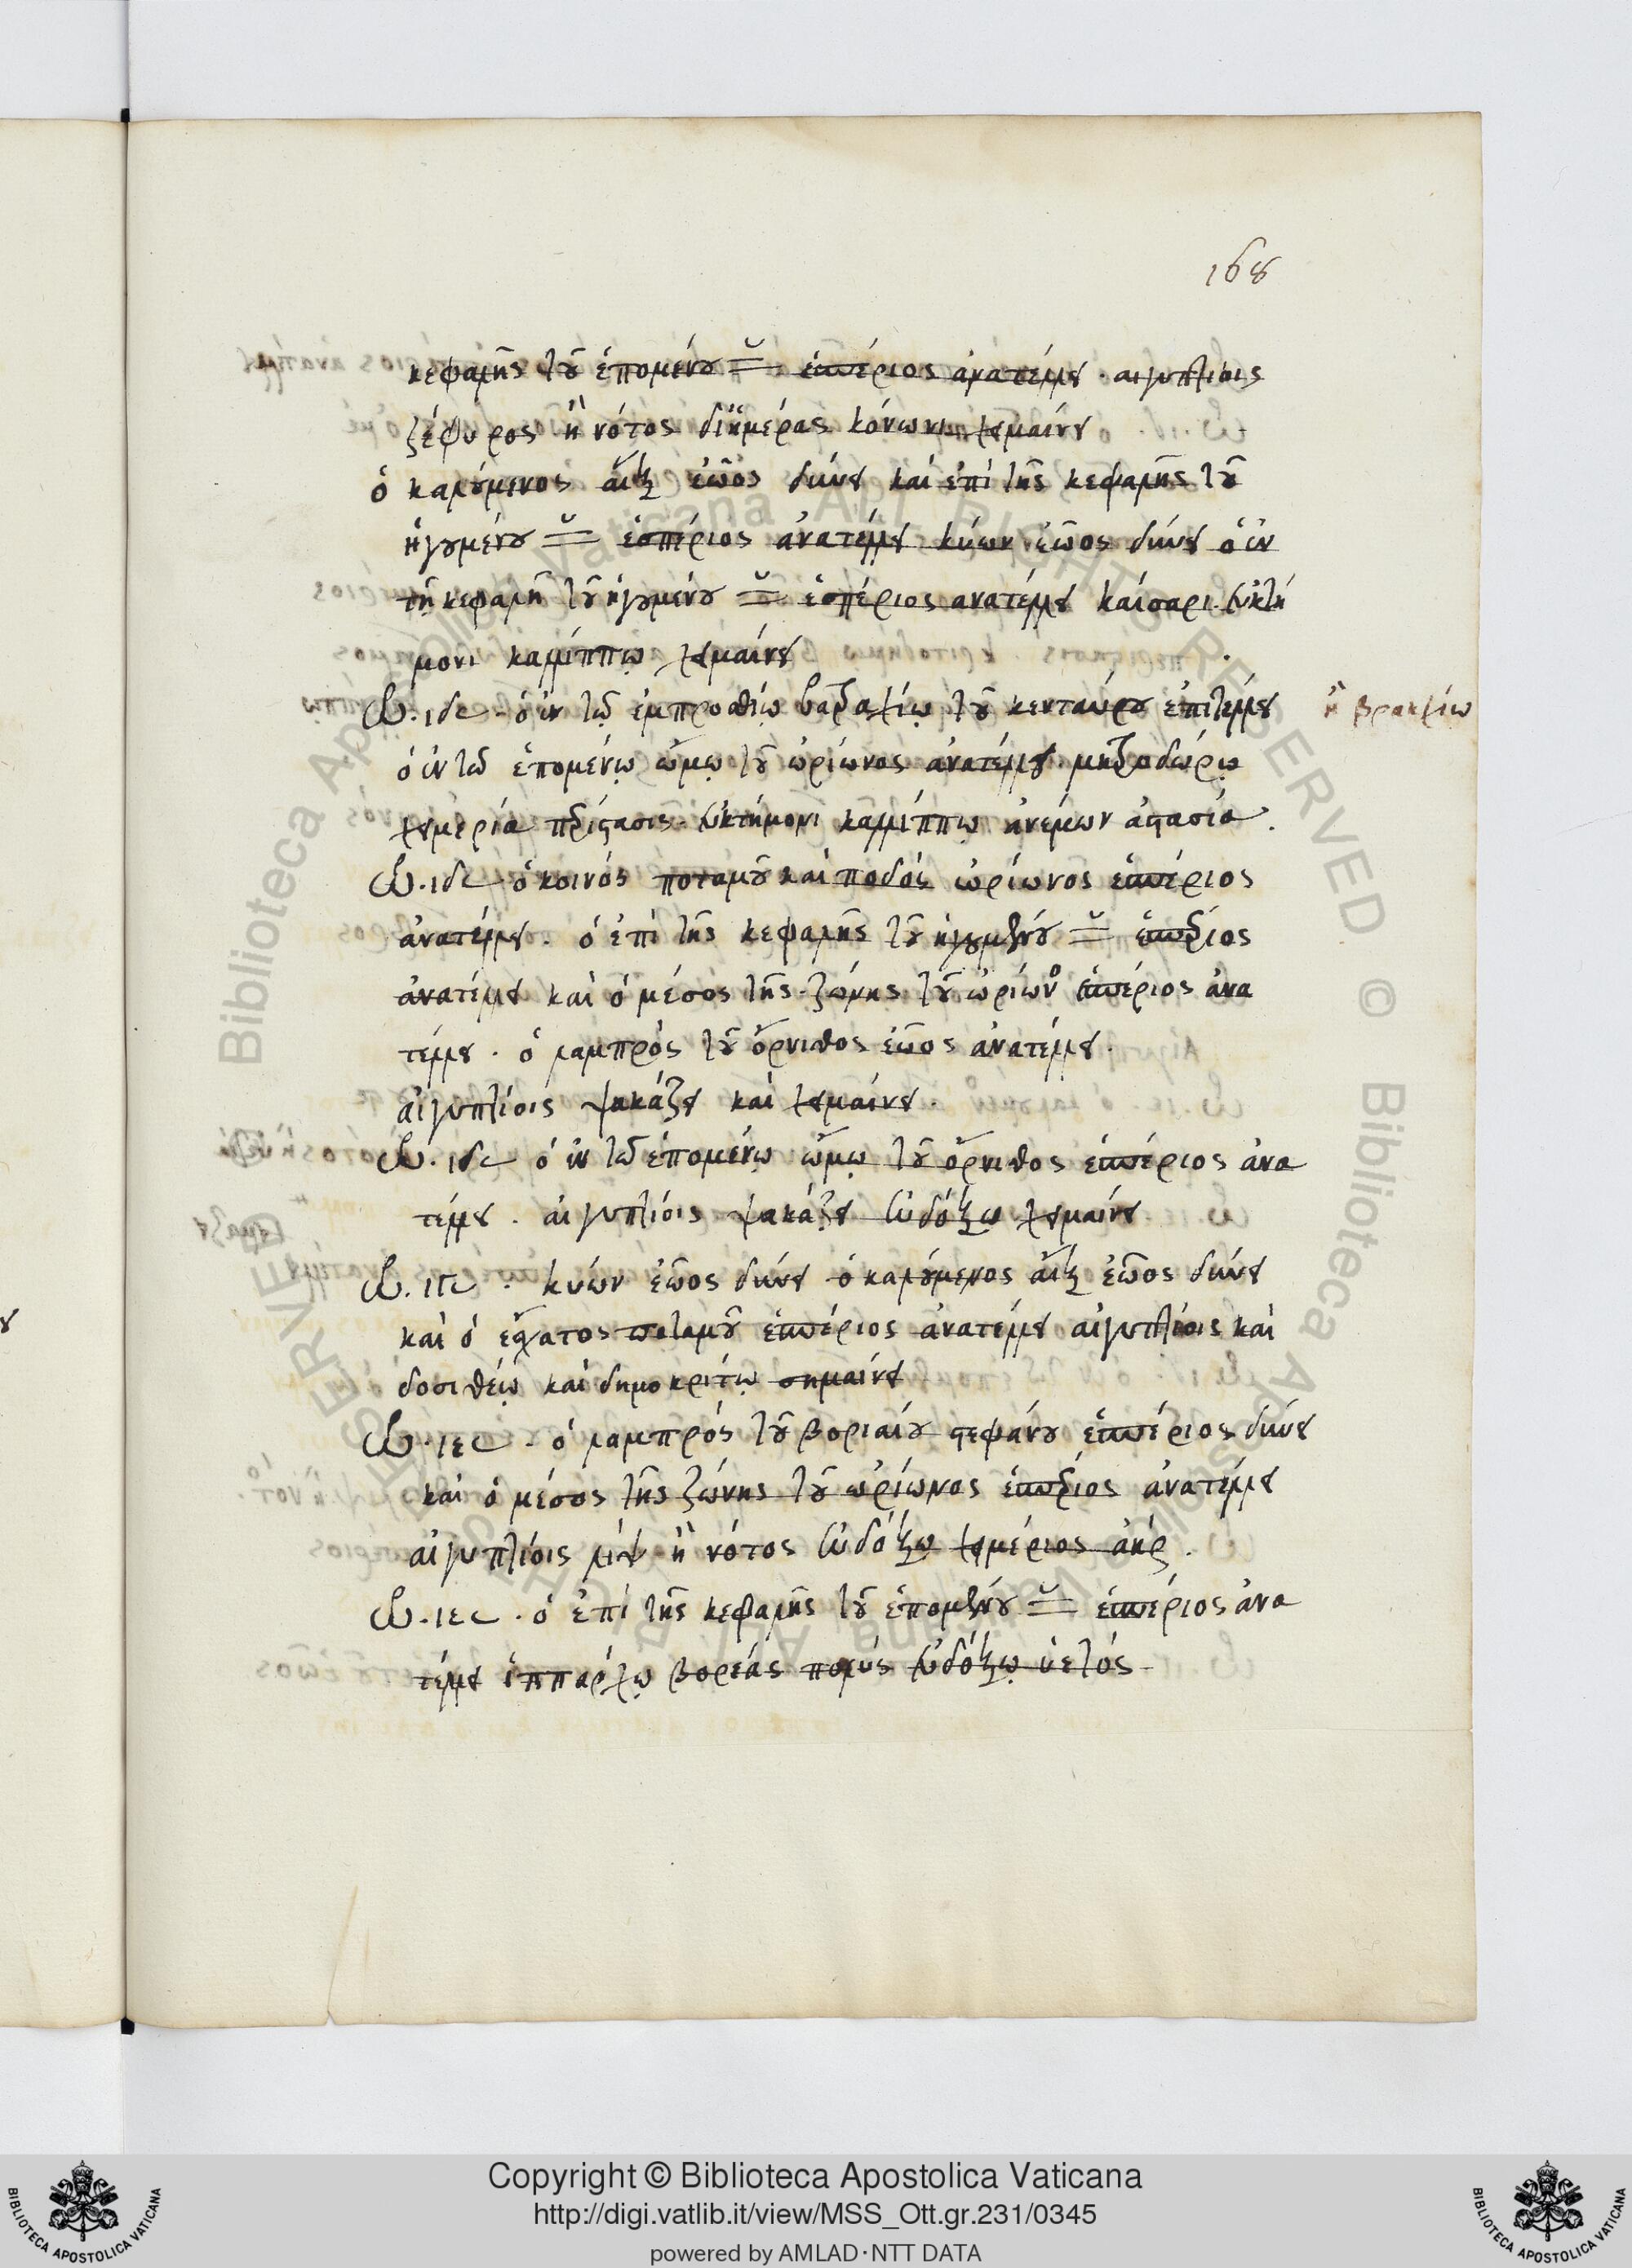 168
κεφαλῆς τοῦ ἑπομένου διδύμου ἑσπέριος ἀνατέλλει. αἰγυπτίοις
ζέφυρος ἢ νότος δι' ἡμέρας κόνωνι χειμαίνει
ὁ καλούμενος αἲξ ἑῶος δύνει καὶ ἐπὶ τῆς κεφαλῆς τοῦ
ἡγουμένου ἑσπέριος ἀνατέλλει κύων ἑῶος δύνει ὁ ἐν
τῇ κεφαλῇ τοῦ ἡγουμένου ἑσπέριος ανατέλλει καίσαρι. εὐκτή
μονι καλλίππῳ χειμαίνει
ὡ. ιδ ὁ ἐν τῷ ἐμπροσθίῳ τοῦ κενταύρου ἐπιτέλλει
ἢ βραχίω
ὁ ἐν τῷ ἑπομένῳ ὤμῳ τοῦ ὠρίωνος ἀνατέλλει. μητροδώρῳ
χειμερία περίστασις. εὐκτήμονι καλλίππῳ ἀνέμων ἀστασία.
ὡ. ιδ ὁ κοινός ποταμοῦ καὶ ποδός ὠρίωνος ἑσπέριος
ἀνατέλλει. ὁ ἐπὶ τῆς κεφαλῆς τοῦ ἡγουμένου ἑσπέριος
ἀνατέλλει καὶ ὁ μέσος τῆς ζώνης τοῦ ὠρίωνος ἑσπέριος ἀνα
τέλλει. ὁ λαμπρός τοῦ ὄρνιθος ἑῶος ἀνατέλλει.
αἰγυπτίοις ψακάζει καὶ χειμαίνει.
ὡ. ιδ ὁ ἐν τῷ ἑπομένῳ ὤμῳ τοῦ ὄρνιθος ἑσπέριος ἀνα
τέλλει. αἰγυπτίοις ψακάζει εὐδόξῳ χειμαίνει
ὡ. κύων ἑῶος δύνει ὁ καλούμενος αἲξ ἑῶος δύνει
καὶ ὁ ἔσχατος ποταμοῦ ἑσπέριος ἀνατέλλει αἰγυπτίοις καὶ
δοσιθέῳ καὶ δημοκρίτῳ σημαίνει
ὡ. ιε. ὁ λαμπρός τοῦ βορείου στεφάνου ἑσπέριος δύνει
καὶ ὁ μέσος τῆς ζώνης τοῦ ὠρίωνος ἑσπέριος ἀνατέλλει
αἰγυπτίοις λίψ ἢ νότος εὐδόξῳ χειμέριος ἀήρ.
ὡ. ιε. ὁ ἐπὶ τῆς κεφαλῆς τοῦ ἑπομένου ἑσπέριος ἀνα
τέλλει ἱππάρχῳ βορέας πολύς εὐδόξῳ ὑετός.
Copyright © Biblioteca Apostolica Vaticana
http://digi.vatlib.it/view/MSS_Ott.gr.231/0345
powered by AMLAD·NTT DATA